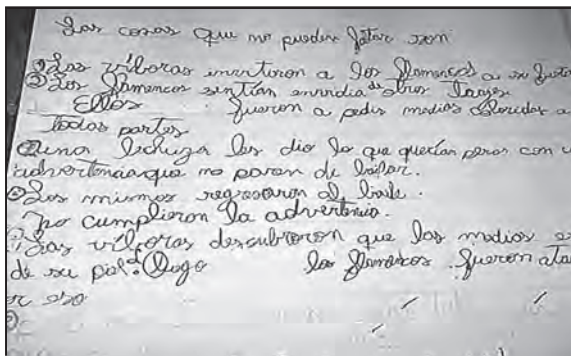 Las cosas que no pueden faltar son
① Las víboras invitaron a los flamencos a su
② Los flamencos sentían envidia de otros trajes
Ellos fueron a pedir medias coloridas a
todas partes
una lechuza les dio lo que querían peros con
advertencia que no paren de bailar.
Los mismos regresaron al baile.
no cumplieron la advertencia.
Las víboras descubroron que las medias
de su piel. luego los flamencos fueron
eso